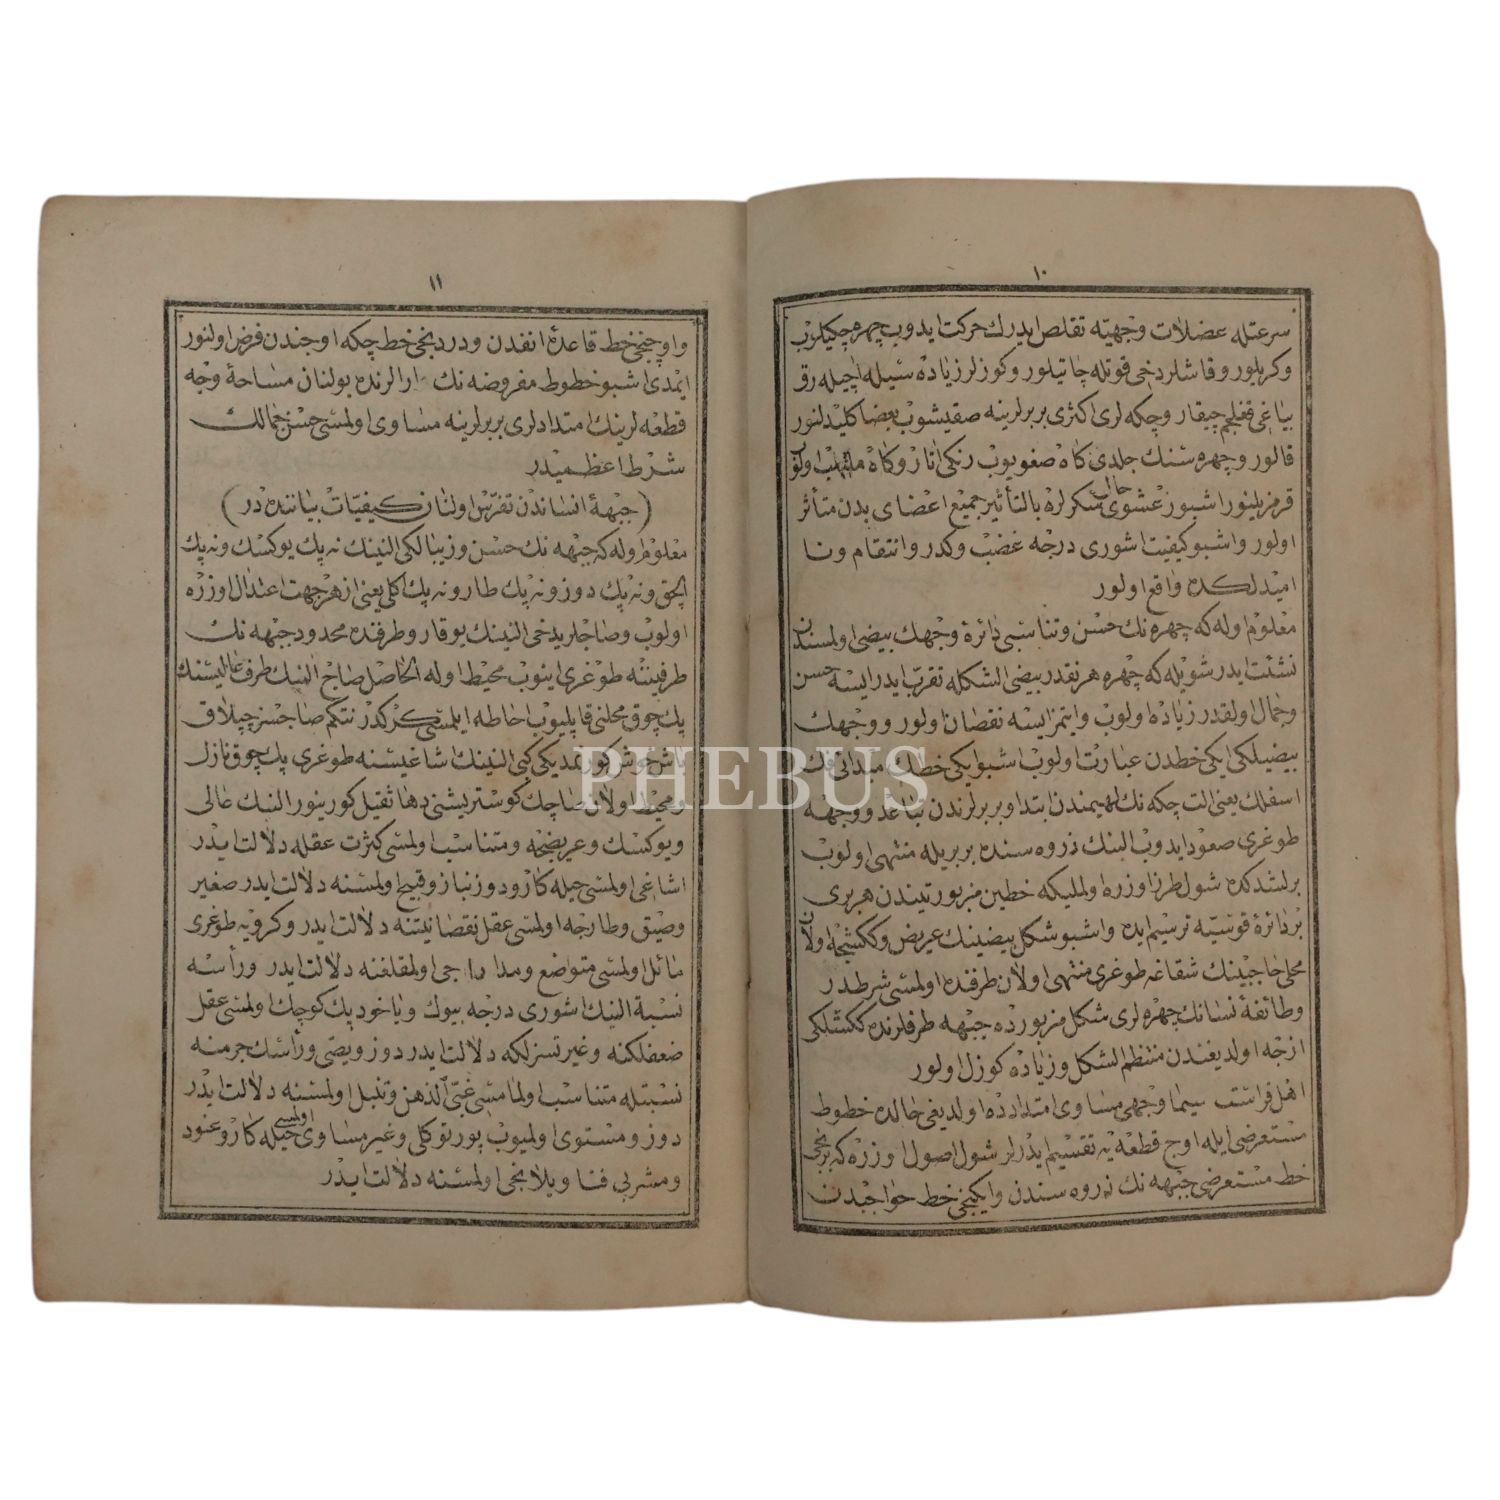 ١٠
سرعتله عضلات وجهیه تقلص ایدرك حركت ایدوب چهره چكیلوب
وكریلور وقاشلر دخی قوتله چاتیلور وكوزلر زیاده سئیله اچیله رق
بیاغی قیغلجم چیقار وچكه لری اكثری بربرلرینه صقیشوب بعضا كلیدلنور
قالور وچهره سنك جلدی كاه صغویوب رنكی اتار وكاه ملتهب اولوب
قرمزیلنور اشبو رعشوی حال متكرلره بالتأثیر جمیع اعضای بدن متأثر
اولور واشبو كیفیت اشوری درجه غضب وكدر وانتقام ونا
امیدلكده واقع اولور
معلوم اوله كه چهره نك حسن وتناسبی دائرهٔ وجهك بیضی اولمسندن
نشئت ایدر شویله كه چهره هر نقدر بیضی الشكله تقرب ایدر ایسه حسن
وجمال اولقدر زیاده اولوب وایتمز ایسه نقصان اولور ووجهك
بیضیلكی ایكی خطدن عبارت اولوب اشبو ایكی خطك میدانی فك
اسفلك یعنی الت چكه نك لهیمندن ابتدا وبربرلرندن تباعد ووجهه
طوغری صعود ایدوب النك ذروه سنده بربریله منتهی اولوب
برلشدكده شول طرز اوزره اولملیكه خطین مزبورتیندن هربری
بر دائرهٔ قوسیه ترسیم ایده واشبو شكل بیضینك عریض وككشجه اولان
محلی حاجبینك شقاغه طوغری منتهی اولان طرفنده اولمسی شرطدر
وطائفهٔ نسانك چهره لری شكل مزبورده جبهه طرفلرنده ككشلكی
ازجه اولدیغندن منتظم الشكل وزیاده كوزل اولور
اهل فراست سیما وجهی مساوی امتدادده اولدیغی حالده خطوط
مستعرضی ایله اوچ قطعه یه تقسیم ایدرلر شول اصول اوزره كه برنجی
خط مستعرضی جبهه نك ذروه سندن وایكنجی خط حواجبدن
١١
واوچنجی خط قاعدهٔ انفدن ودردنجی خط چكه اوجندن فرض اولنور
ایمدی اشبو خطوط مفروضه نك ارالرنده بولنان مساحهٔ وجه
قطعه لرینك امتدادلری بربرلرینه مساوی اولمسی حسن جمالك
شرط اعظمیدر
(جبههٔ انساندن تفرس اولنان كیفیات بیاننده در)
معلوم اوله كه جبهه نك حسن وزیبالكی النینك نه پك یوكسك ونه پك
الچق ونه پك دوز ونه پك طار ونه پك اكلی یعنی از هر جهت اعتدال اوزره
اولوب وصاجلر یدخی النینك یوقارو طرفنده محدود جبهه نك
طرفیننه طوغری اینوب محیط اوله الحاصل صاج النك طرف عالیسنك
پك چوق محلنی قاپلیوب احاطه ایلمسی كركدر نتكم صاجسز چپلاق
باش خوش كورنمدیكی كبی النینك شاغیسنه طوغری پك چوق نازل
ومحیط اولان صاچك كوستریشی دها ثقیل كورینور النك عالی
ویوكسك وعریضجه ومتناسب اولمسی كثرت عقله دلالت ایدر
اشاغی اولمسی حیله كار ودوزنباز وقبیح اولمسنه دلالت ایدر صغیر
وضیق وطارجه اولمسی عقل نقصانیتنه دلالت ایدر وكرویه طوغری
مائل اولمسی متواضع ومداراجی اولمقلغنه دلالت ایدر ورأسه
نسبة النك اشوری درجه بیوك ویاخود پك كوچك اولمسی عقل
ضعفلكنه وغیرتسزلكه دلالت ایدر دوز ویصی ورأسك جرمنه
نسبتله متناسب اولمامسی غبی الذهن وتنبل اولمسنه دلالت ایدر
دوز ومستوی اولمیوب پورتوكلی وغیر مساوی اولمسی حیله كار وعنود
ومشربی فنا ویلانجی اولمسنه دلالت ایدر
PHEBUS